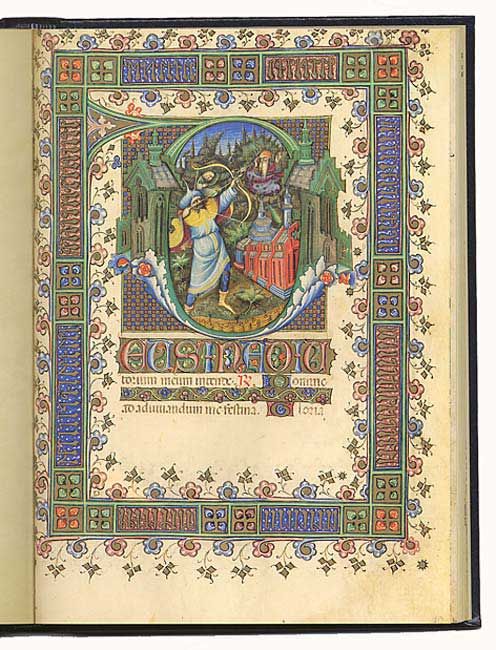 DEUS IN ADIU
torium meum intende. R. Domine
ad adiuuandum me festina. Gloria